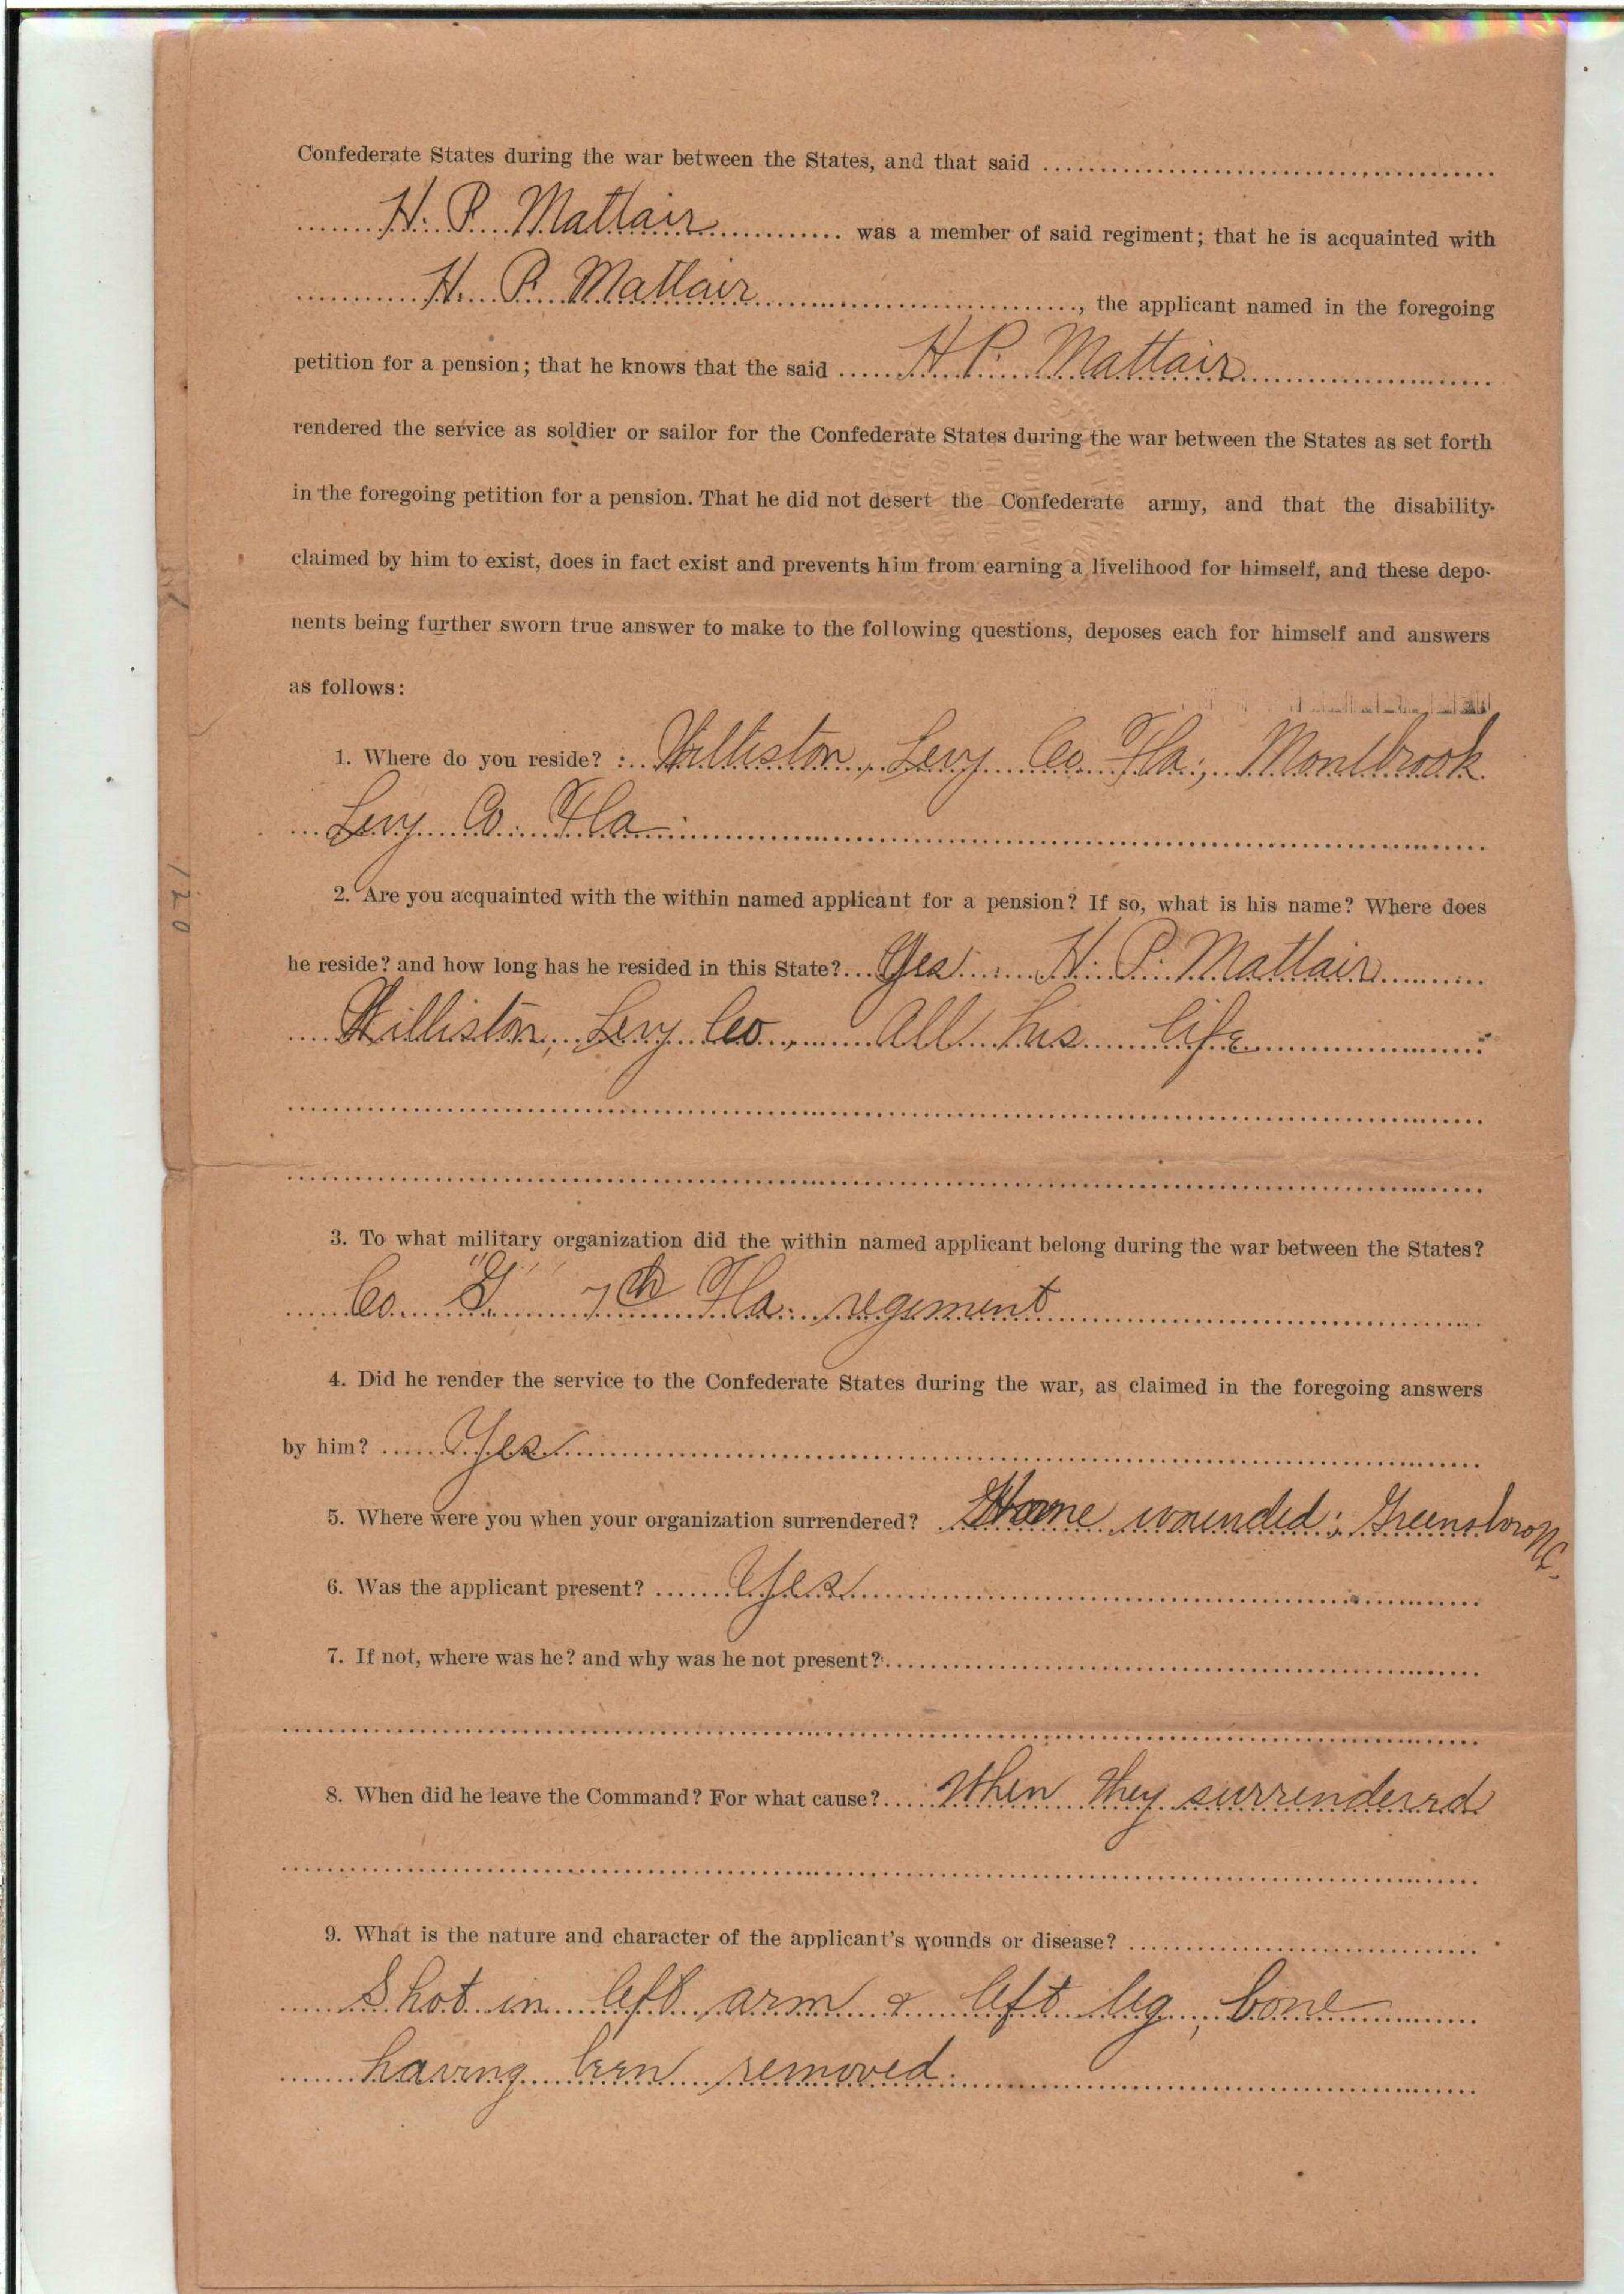 Confederate States during the war between the States, and that said
H. P. Mattair was a member of said regiment; that he is acquainted with
H. P. Mattair, the applicant named in the foregoing
petition for a pension; that he knows that the said H. P. Mattair
rendered the service as soldier or sailor for the Confederate States during the war between the States as set forth
in the foregoing petition for a pension. That he did not desert the Confederate army, and that the disability
claimed by him to exist, does in fact exist and prevents him from earning a livelihood for himself, and these depo-
nents being further sworn true answer to make to the following questions, deposes each for himself and answers
as follows:
1. Where do you reside? Williston, Levy Co. Fla; Montbrook
Levy Co. Fla
2. Are you acquainted with the within named applicant for a pension? If so, what is his name? Where does
he reside? and how long has he resided in this State? Yes. H. P. Mattair
Williston, Levy Co., All his life
3. To what military organization did the within named applicant belong during the war between the States?
Co. 7th Fla. regiment
4. Did he render the service to the Confederate States during the war, as claimed in the foregoing answers
by him? Yes
5. Where were you when your organization surrendered? Home wounded; Greensboro NC.
6. Was the applicant present? Yes
7. If not, where was he? and why was he not present?
8. When did he leave the Command? For what cause? When they surrenderrd
9. What is the nature and character of the applicant's wounds or disease?
Shot in left arm & left leg, bone
having been removed.
120